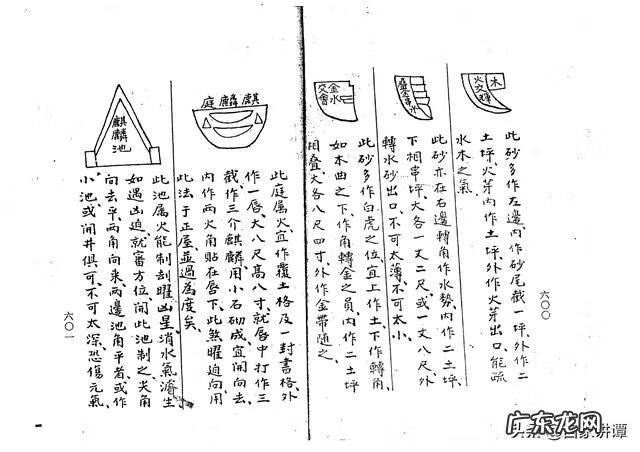 六〇〇
木
火交
此砂多作左邊內作砂尾截一坪外作二
土坪、火芽內作土坪、外作火芽出口能疏
水木之氣
此砂亦在右邊轉角作水勢內作二土坪
下相串坪、大各一丈二尺或一丈八尺外
轉水砂出口、不可太薄、不可太小
金水
交會
此砂多作白虎之位、宜上作土、下作轉角、
如木曲之下、作角轉金之員、內作二土坪
相叠、大各八尺四寸、外作金帶随之
麒麟庭
此庭属火、宜作覆土格及一封書格外
作一唇、大八尺高八寸、就唇中打作三
截、作三介麒麟、用小石砌成宜開向去、
內作两火角貼在唇下、此煞曜迫向用
此法于正屋並過為度矣
麒麟池
此池属火能制刮曜凶星消水氣濬生
如遇凶迫、就審方位、開此池制之尖角
向去平、两角向來、两邊池角平者、或作
小池、或開井俱可、不可太深、恐傷元氣
六〇一
头条@百家讲谭
广东龙网